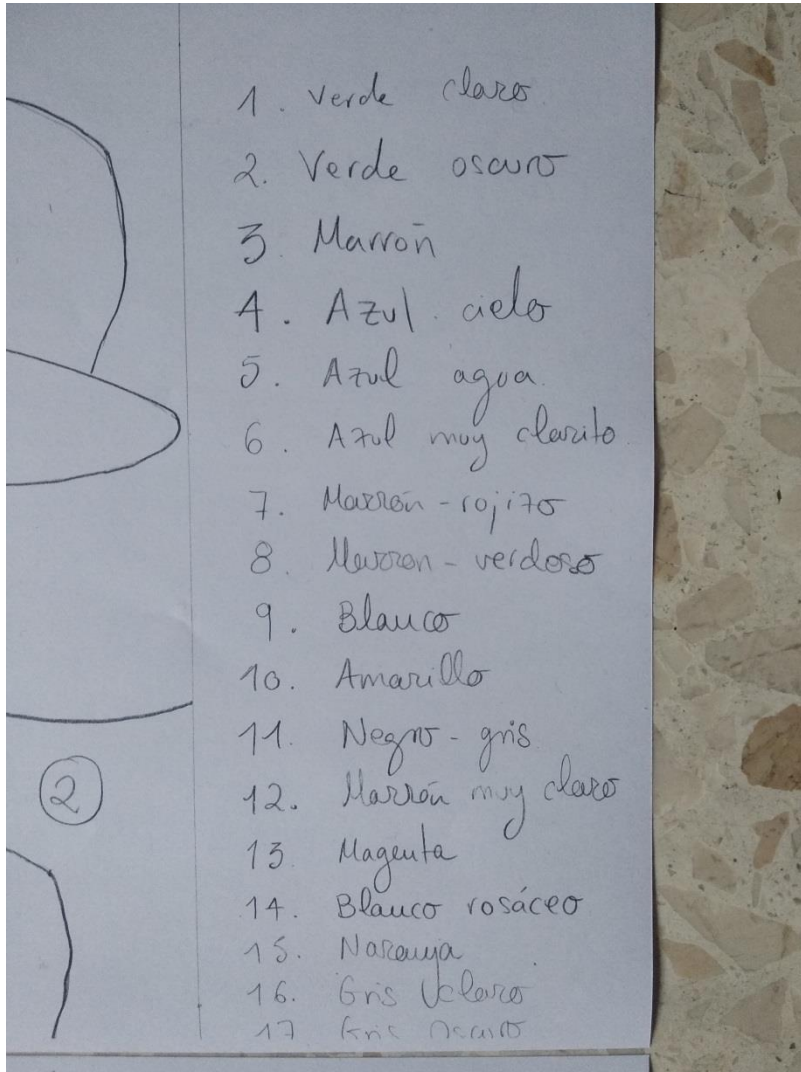 1. Verde claro
2. Verde oscuro
3. Marrón
4. Azul cielo
5. Azul agua
6. Azul muy clarito
7. Marrón-rojizo
8. Marron-verdoso
9. Blanco
10. Amarillo
11. Negro-gris
12. Marrón muy claro
13 Magenta
14. Blanco rosáceo
15. Naranja
16. Gris claro
17 Gris oscuro
2